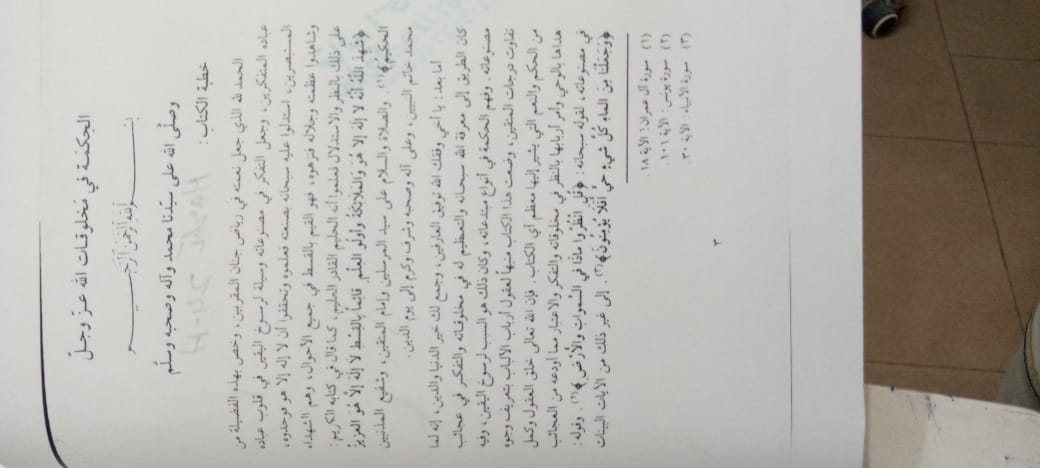 الحكمة في مخلوقات الله عز وجل
بسم الله الرحمن الرحيم
وصلّى الله على سيّدنا محمد وآله وصحبه وسلّم
خطبة الكتاب :
الحمد لله الذي جعل نعمته في رياض جنان المقربين، وخص بهذه الفضيلة من
عباده المتفكرين، وجعل التفكر في مصنوعاته وسيلة لرسوخ اليقين في قلوب عباده
المستبصرين، استدلوا عليه سبحانه بصنعته فعلموه وتحققوا أن لا إله إلا هو فوحدوه،
وشاهدوا عظمته وجلاله فنزهوه، فهو القيم بالقسط في جميع الأحوال، وهم الشهداء
على ذلك بالنظر والاستدلال فعلموا أنه الحليم القادر العليم، كما قال في كتابه الكريم:
﴿شَهِدَ اللَّهُ أَنَّهُ لا إِلهَ إلَّا هُوَ وَالْمَلائِكَةُ وَأُولُو الْعِلْمِ قائِماً بِالْقِسْطِ لا إِلهَ إلَّا هُوَ الْعَزِيزُ
الْحَكِيمُ﴾(١) والصلاة والسلام على سيد المرسلين وإمام المتقين، وشفيع المذنبين
محمد خاتم النبيين، وعلى آله وصحبه وشرف وكرم إلى يوم الدين.
أما بعد: يا أخي وفقك الله توفيق العارفين، وجمع لك خير الدنيا والدين، إنه لما
كان الطريق إلى معرفة الله سبحانه والتعظيم له في مخلوقاته والتفكر في عجائب
مصنوعاته، وفهم الحكمة في أنواع مبتدعاته، وكان ذلك هو السبب لرسوخ اليقين، وفيه
تفاوت درجات المتقين، وضعت هذا الكتاب منبهاً لعقول أرباب الألباب بتعريف وجوه
من الحكم والنعم التي يشير إليها معظم آي الكتاب. فإن الله تعالى خلق العقول وكمل
هداها بالوحي وأمر أربابها بالنظر في مخلوقاته والتفكر والاعتبار مما أودعه من العجائب
في مصنوعاته، لقوله سبحانه: ﴿قُلِ انْظُرُوا ماذَا فِي السَّمواتِ وَالْأَرْضِ﴾(٢). وقوله:
﴿وَجَعَلْنَا مِنَ الْماءِ كُلَّ شَيْءٍ حَيٍّ أَفَلا يُؤْمِنُونَ﴾(٣). إلى غير ذلك من الآيات البينات
(١) سورة آل عمران: الآية ١٨.
(٢) سورة يونس: الآية ١٠١.
(٣) سورة الأنبياء: الآية ٣٠.
٣